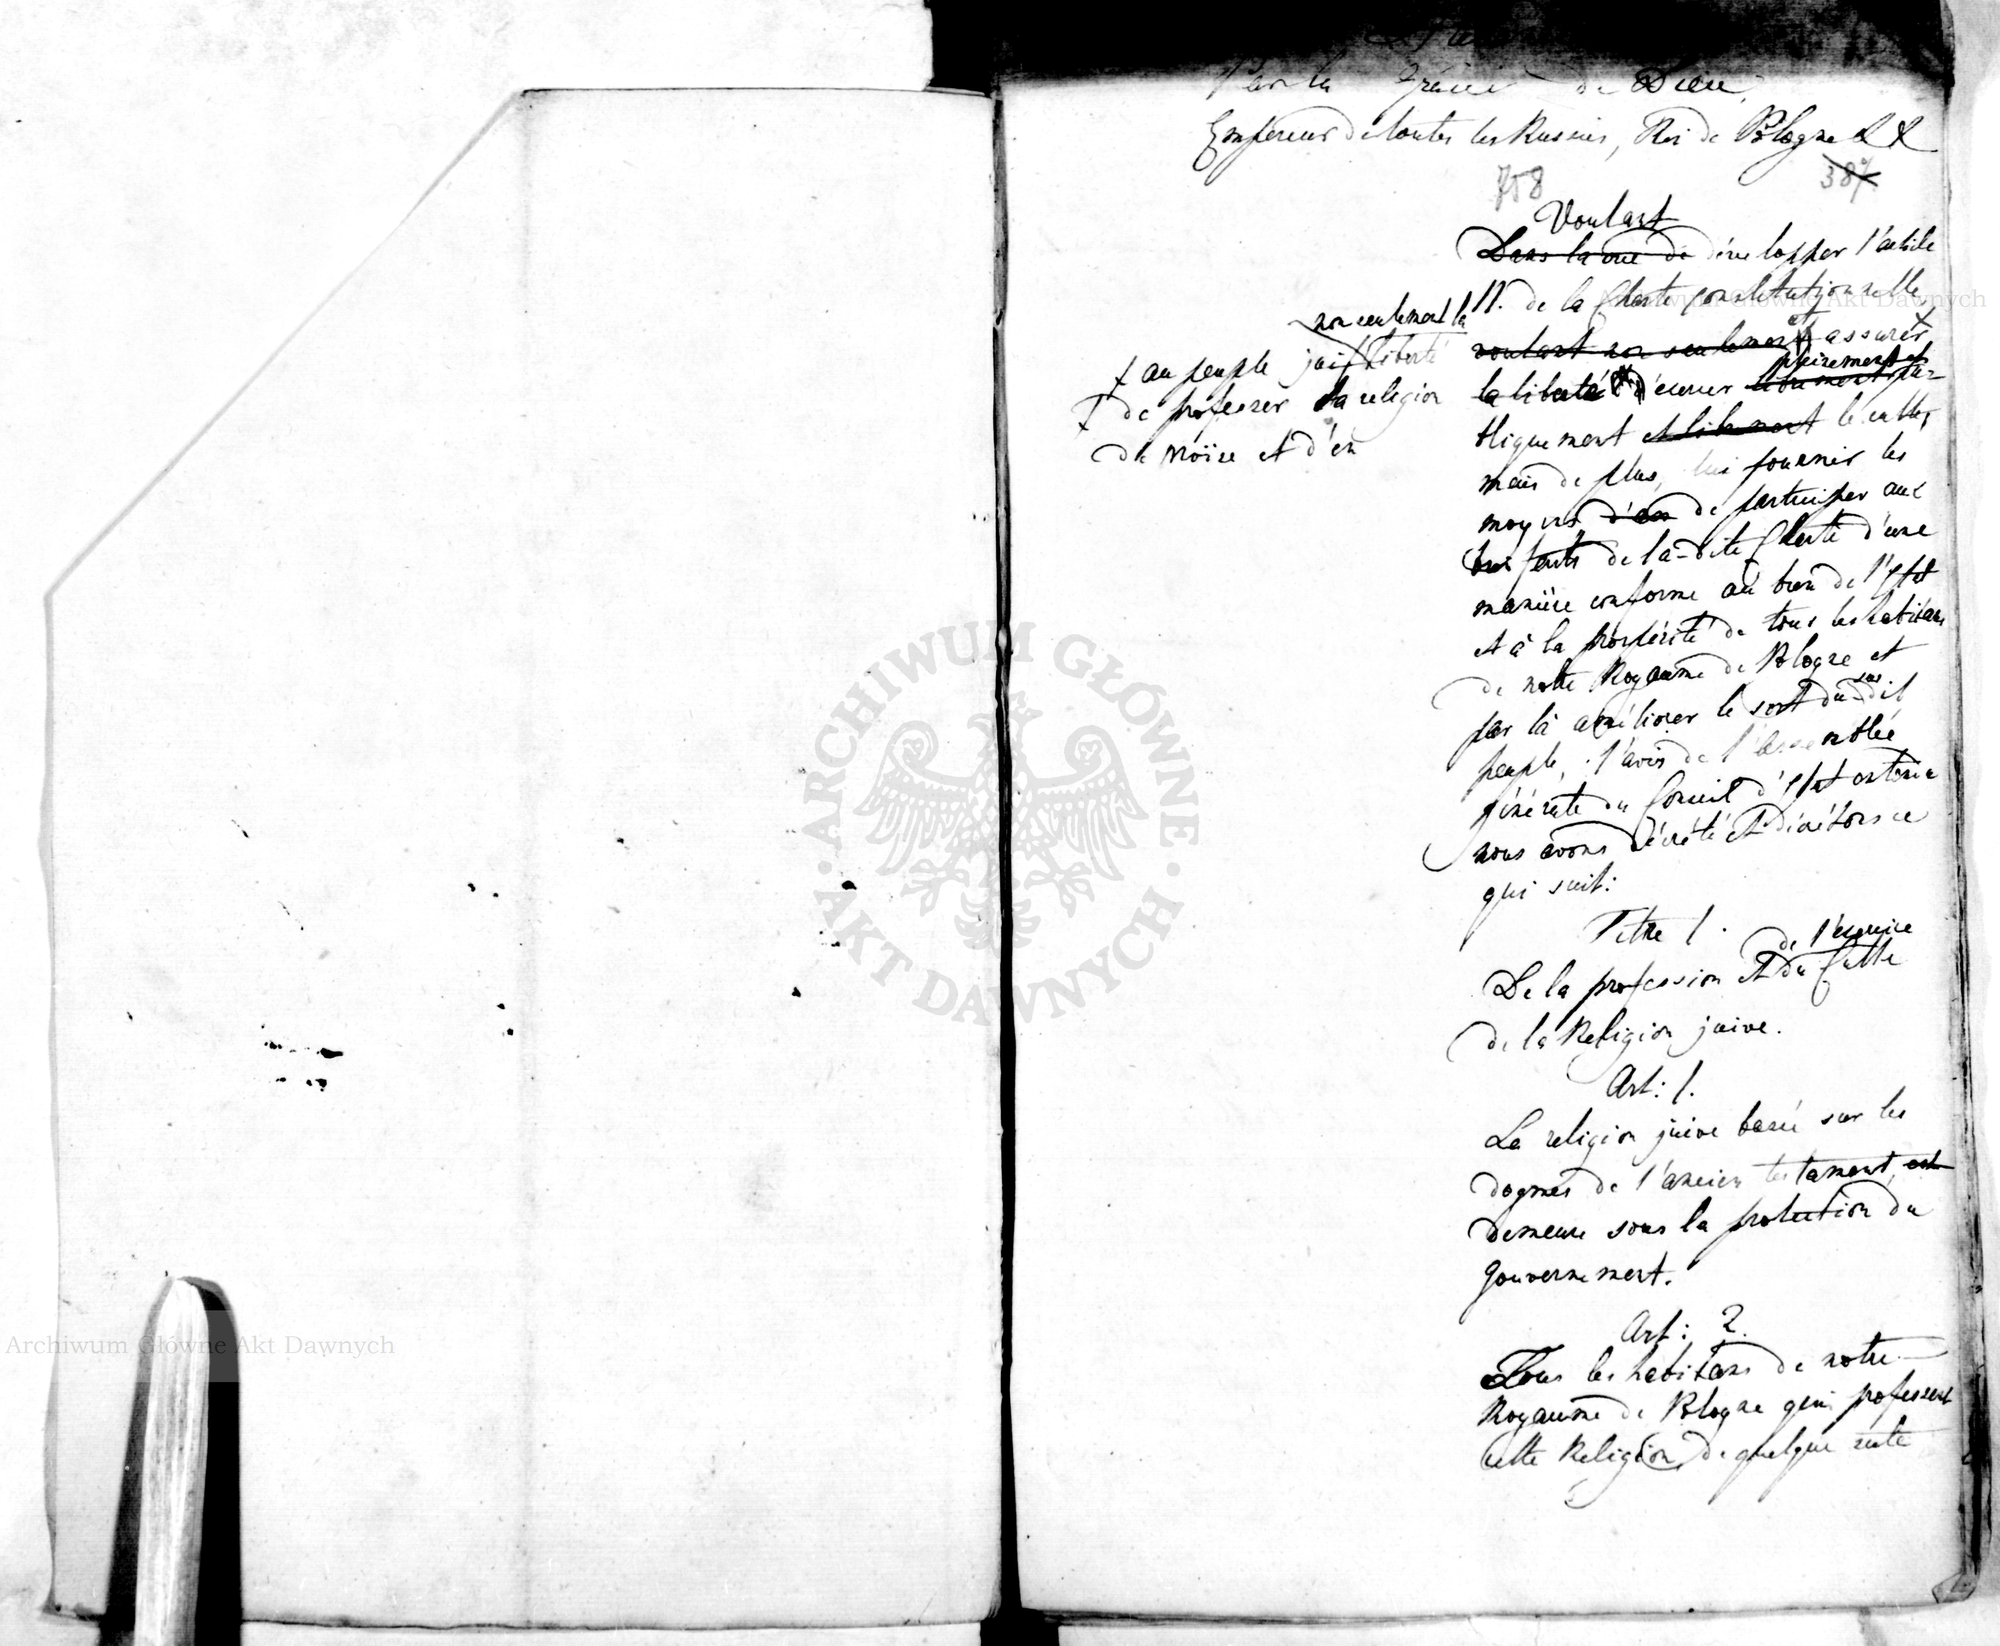 Par la Grâce de Dieu,
Empereur de toutes les Russies, Roi de Pologne & &
758 387.
Voulant
Dans la vue de développer l'article
11. de la Charte constitutionnelle,
voulant non seulement et assurer
la liberté d'exercer librement pleinement et pu-
bliquement et librement le culte,
mais de plus, lui fournir les
moyens d'en de participer aux
bienfaits de la-dite Charte d'une
manière conforme au bien de l'Etat
et à la prospérité de tous les habitans
de notre Royaume de Pologne et
par là améliorer le sort du sus-dit
peuple, l'avis de l'assemblée
générale du Conseil d'Etat entendu
nous avons décrété et décrétons ce
qui suit:
non seulement la
+ au peuple juif liberté
+ de professer la religion
de Moïse et d'en
Titre 1.
de l'exercice
De la profession et du Culte
de la Religion juive.
Art: 1.
La religion juive basée sur les
dogmes de l'ancien testament, est
demeure sous la protection du
Gouvernement.
Art: 2.
Tous les habitans de notre
Royaume de Pologne qui professent
cette Religion, de quelque secte
ARCHIWUM GŁÓWNE · AKT DAWNYCH ·
Archiwum Główne Akt Dawnych
Archiwum Główne Akt Dawnych